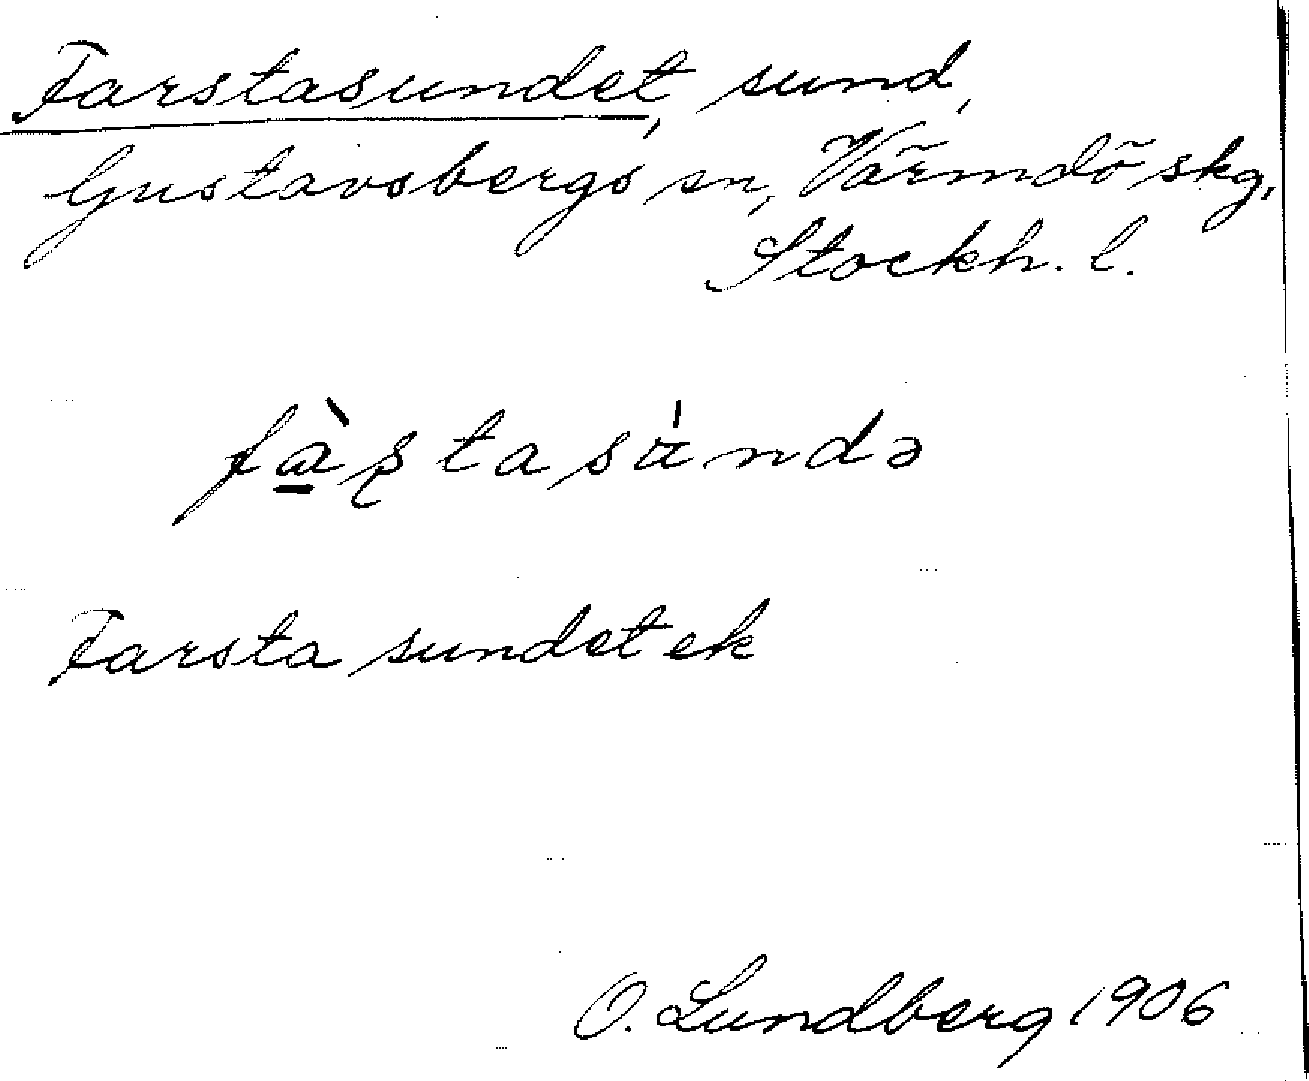 Farstasundet, sund,
Gustavsbergs sn, Värmdö skg,
Stockh. l.
fà̱ʂtasá̈ndə
Farsta sundet ek
O. Lundberg 1906